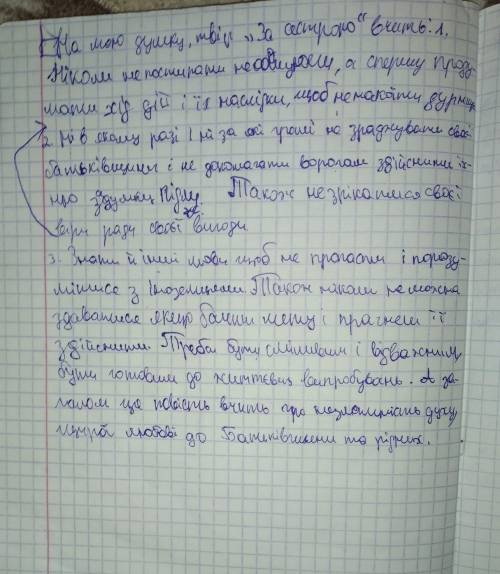 На мою думку, твір „За сестрою“ вчить: 1.
Ніколи не поступати необдумано, а спершу проду-
мати хід дій і їх наслідки, щоб не накоїти дурниць
2. Ні в якому разі і ні за які гроші не зраджувати своєї
батьківщини і не допомагати ворогам здійснити їх-
ню задумку підлу. Також не зрікатися своєї
віри ради своєї вигоди.
3. Знати й інші мови щоб не пропасти і порозу-
мітися з іноземцями. Також ніколи не можна
здаватися якщо бачиш мету і прагнеш її
здійснити. Треба бути сміливим і відважним
бути готовим до життєвих випробувань. А за-
галом ця повість вчить про незламність духу,
щирої любові до Батьківщини та рідних.